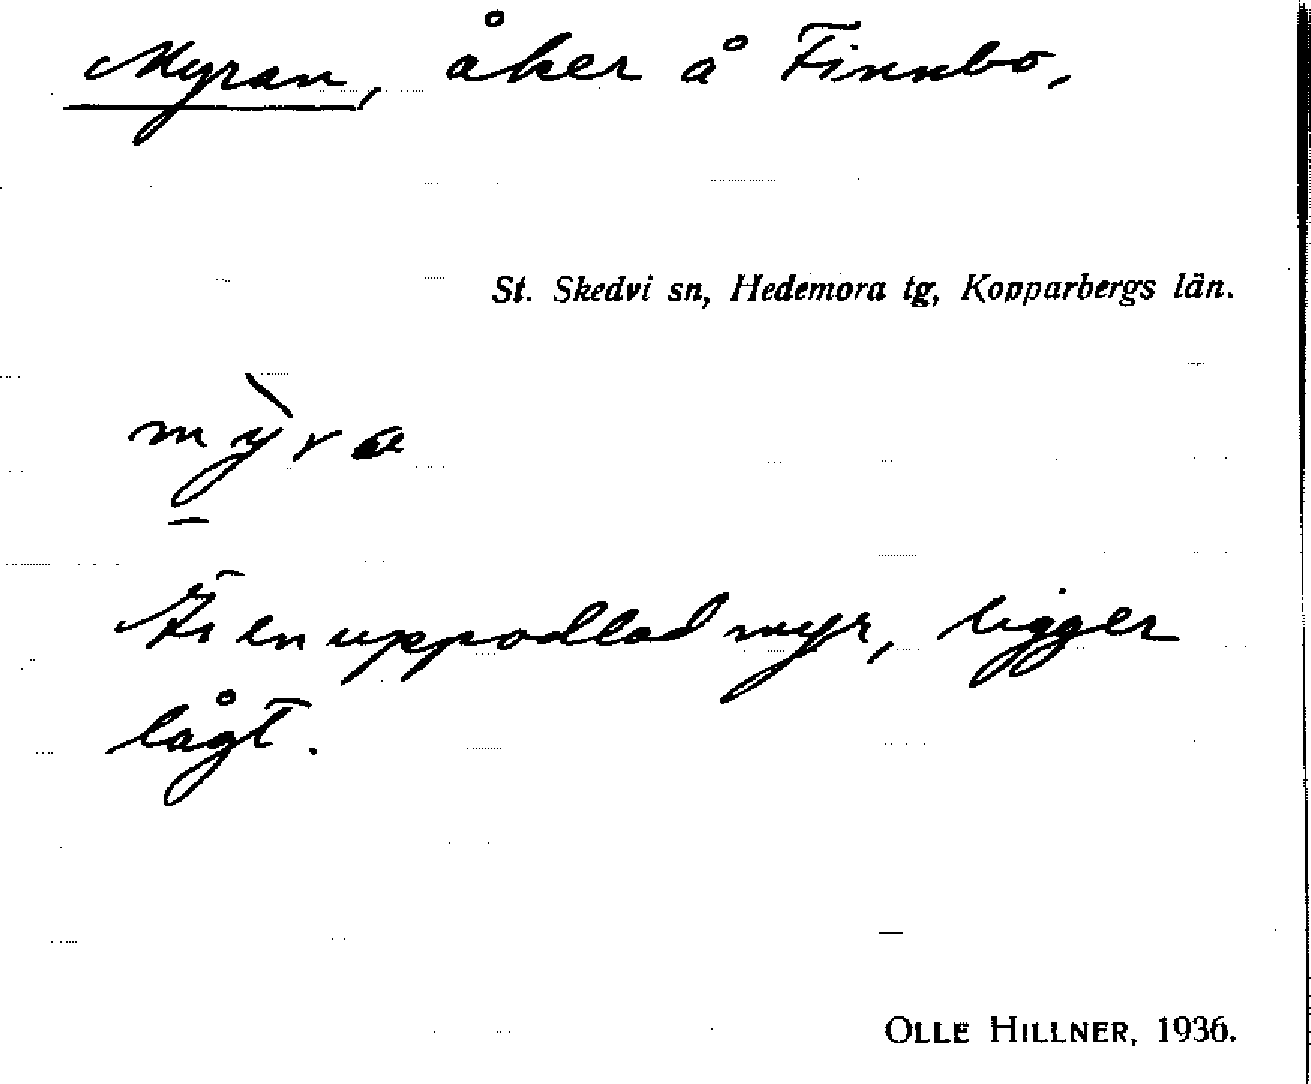 Myran, åker å Finnbo,
St. Skedvi sn, Hedemora tg, Kopparbergs län.
mỳ̱ra
Är en uppodlad myr, ligger
lågt.
OLLE HILLNER, 1936.